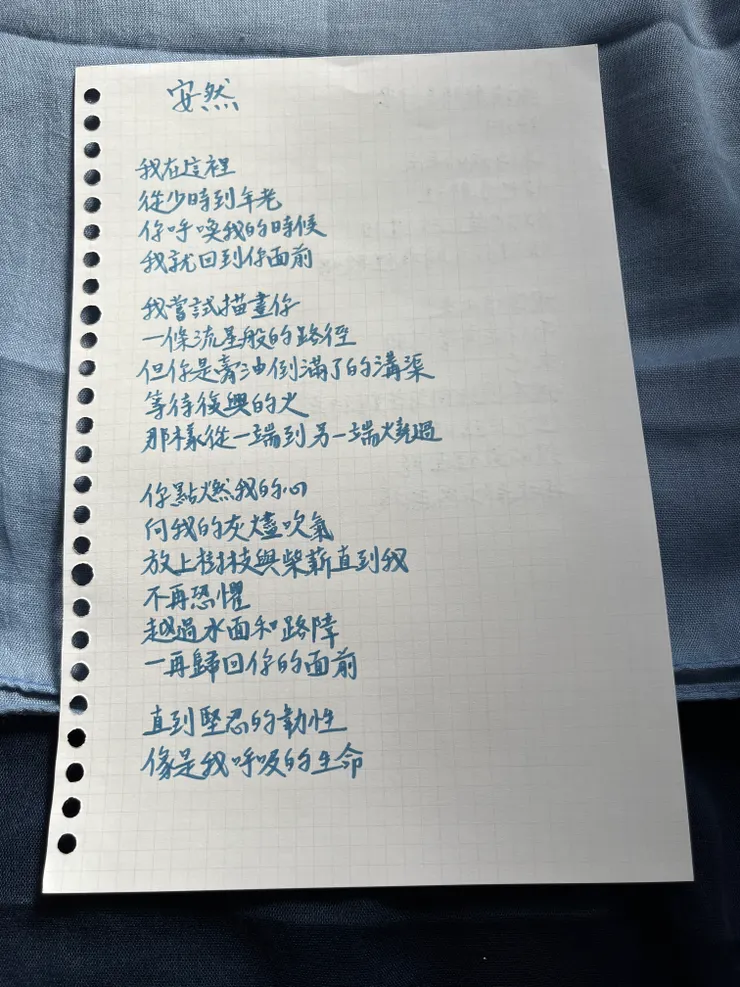 安然
我在這裡
從少時到年老
你呼喚我的時候
我就回到你面前
我嘗試描畫你
一條流星般的路徑
但你是膏油倒滿了的溝渠
等待復興的火
那樣從一端到另一端燒過
你點燃我的心
向我的灰燼吹氣
放上樹枝與柴薪直到我
不再恐懼
越過水面和路障
一再歸回你的面前
直到堅忍的韌性
像是我呼吸的生命